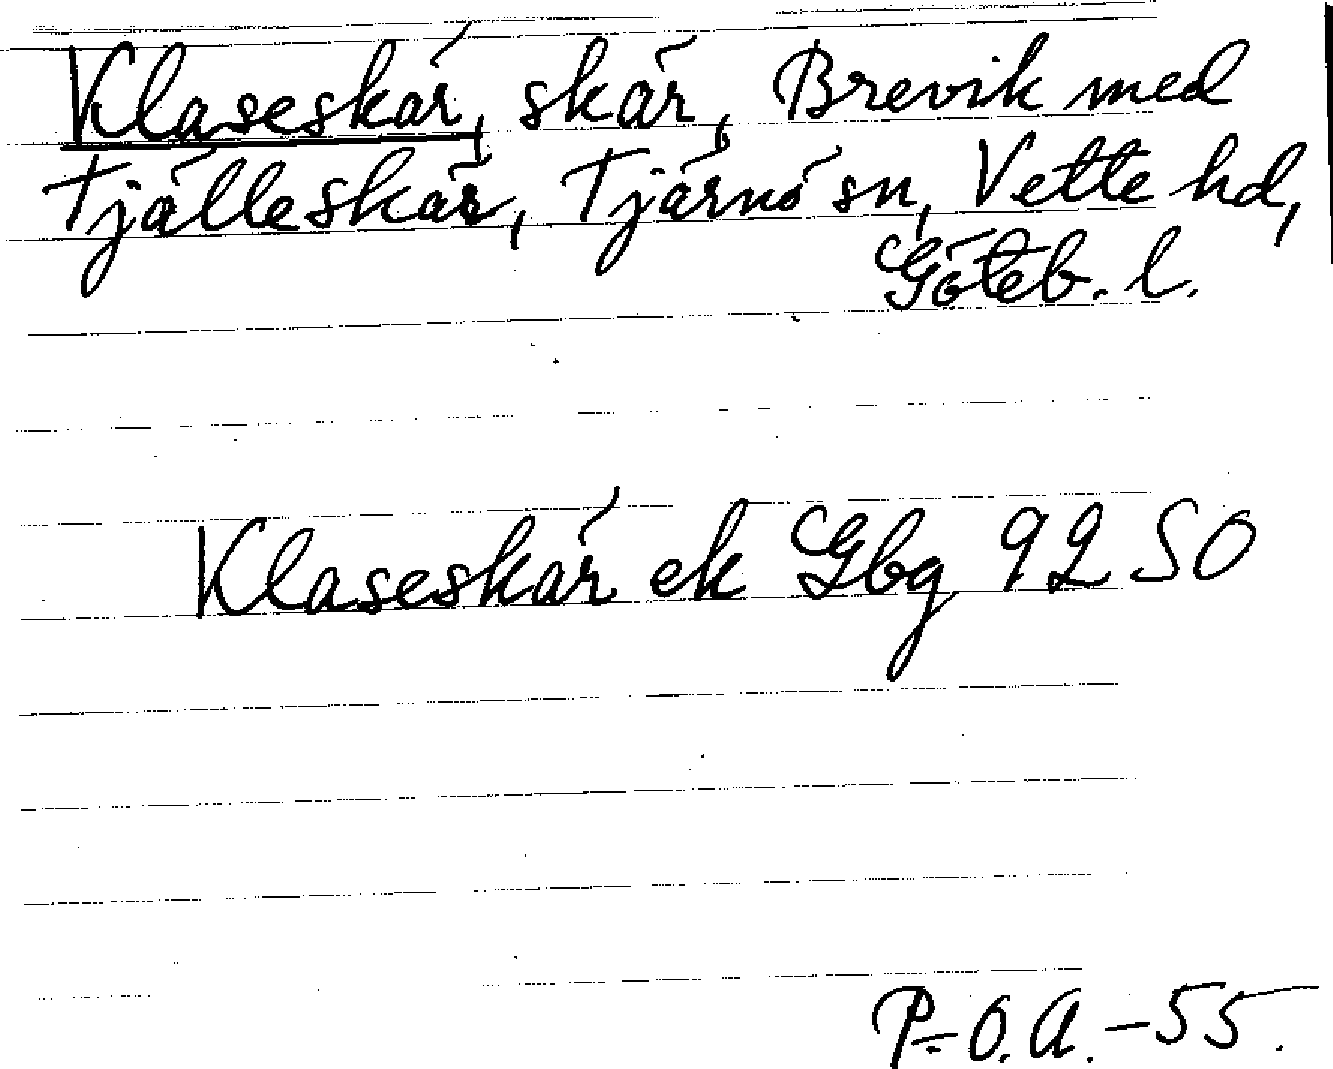 Klaseskär, skär, Brevik med
Tjälleskär, Tjärnö sn, Vette hd,
Göteb. l.
Klaseskär ek Gbg 92 SO
P-O.A.-55.